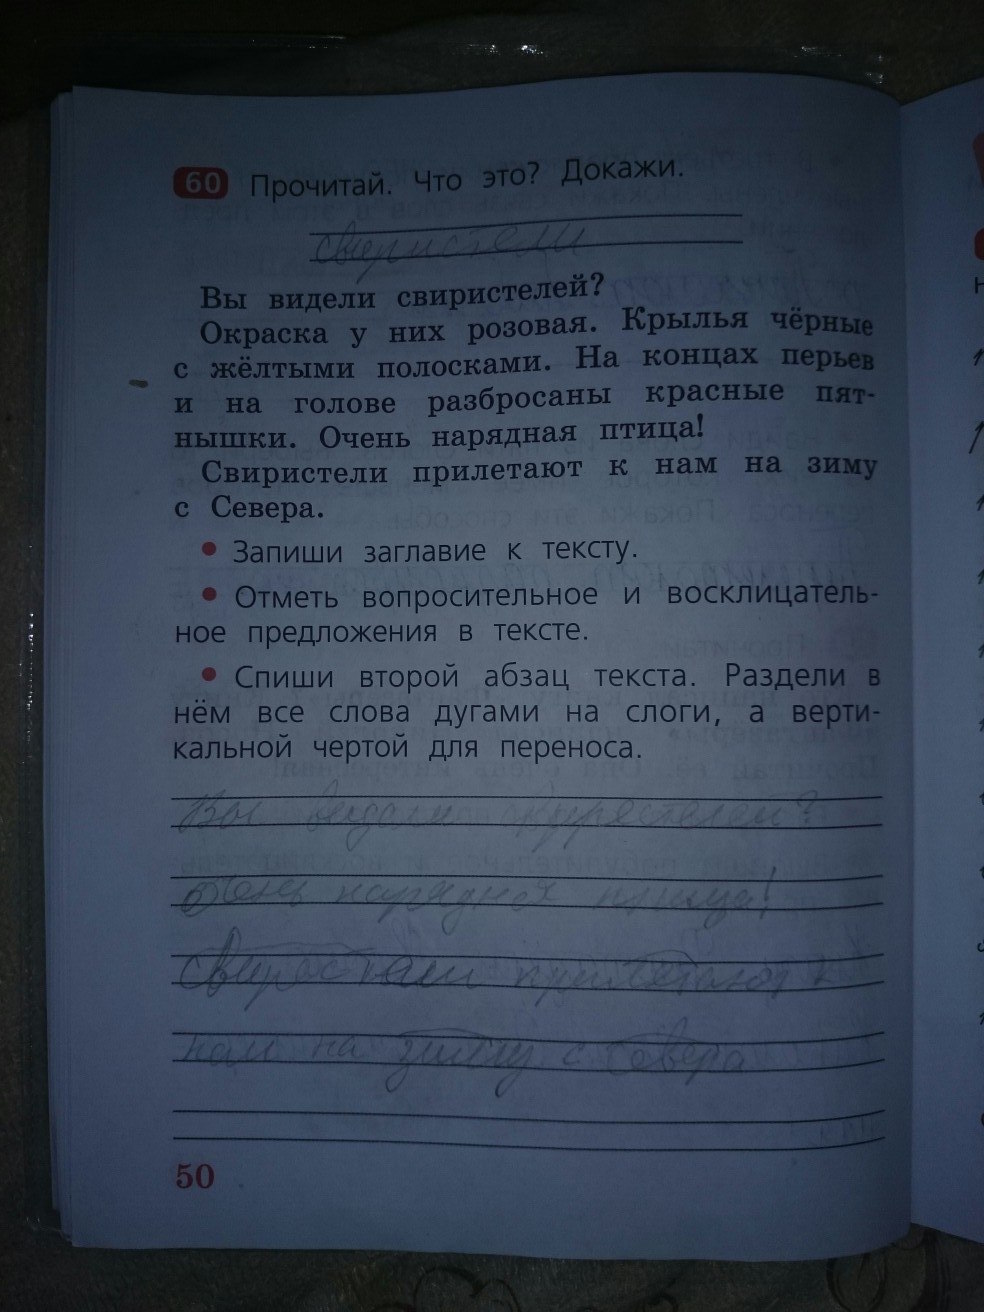 60 Прочитай. Что это? Докажи.
свиристели
Вы видели свиристелей?
Окраска у них розовая. Крылья чёрные
с жёлтыми полосками. На концах перьев
и на голове разбросаны красные пят-
нышки. Очень нарядная птица!
Свиристели прилетают к нам на зиму
с Севера.
• Запиши заглавие к тексту.
• Отметь вопросительное и восклицатель-
ное предложения в тексте.
• Спиши второй абзац текста. Раздели в
нём все слова дугами на слоги, а верти-
кальной чертой для переноса.
Вы
птица!
к
нам на зиму с Севера
50